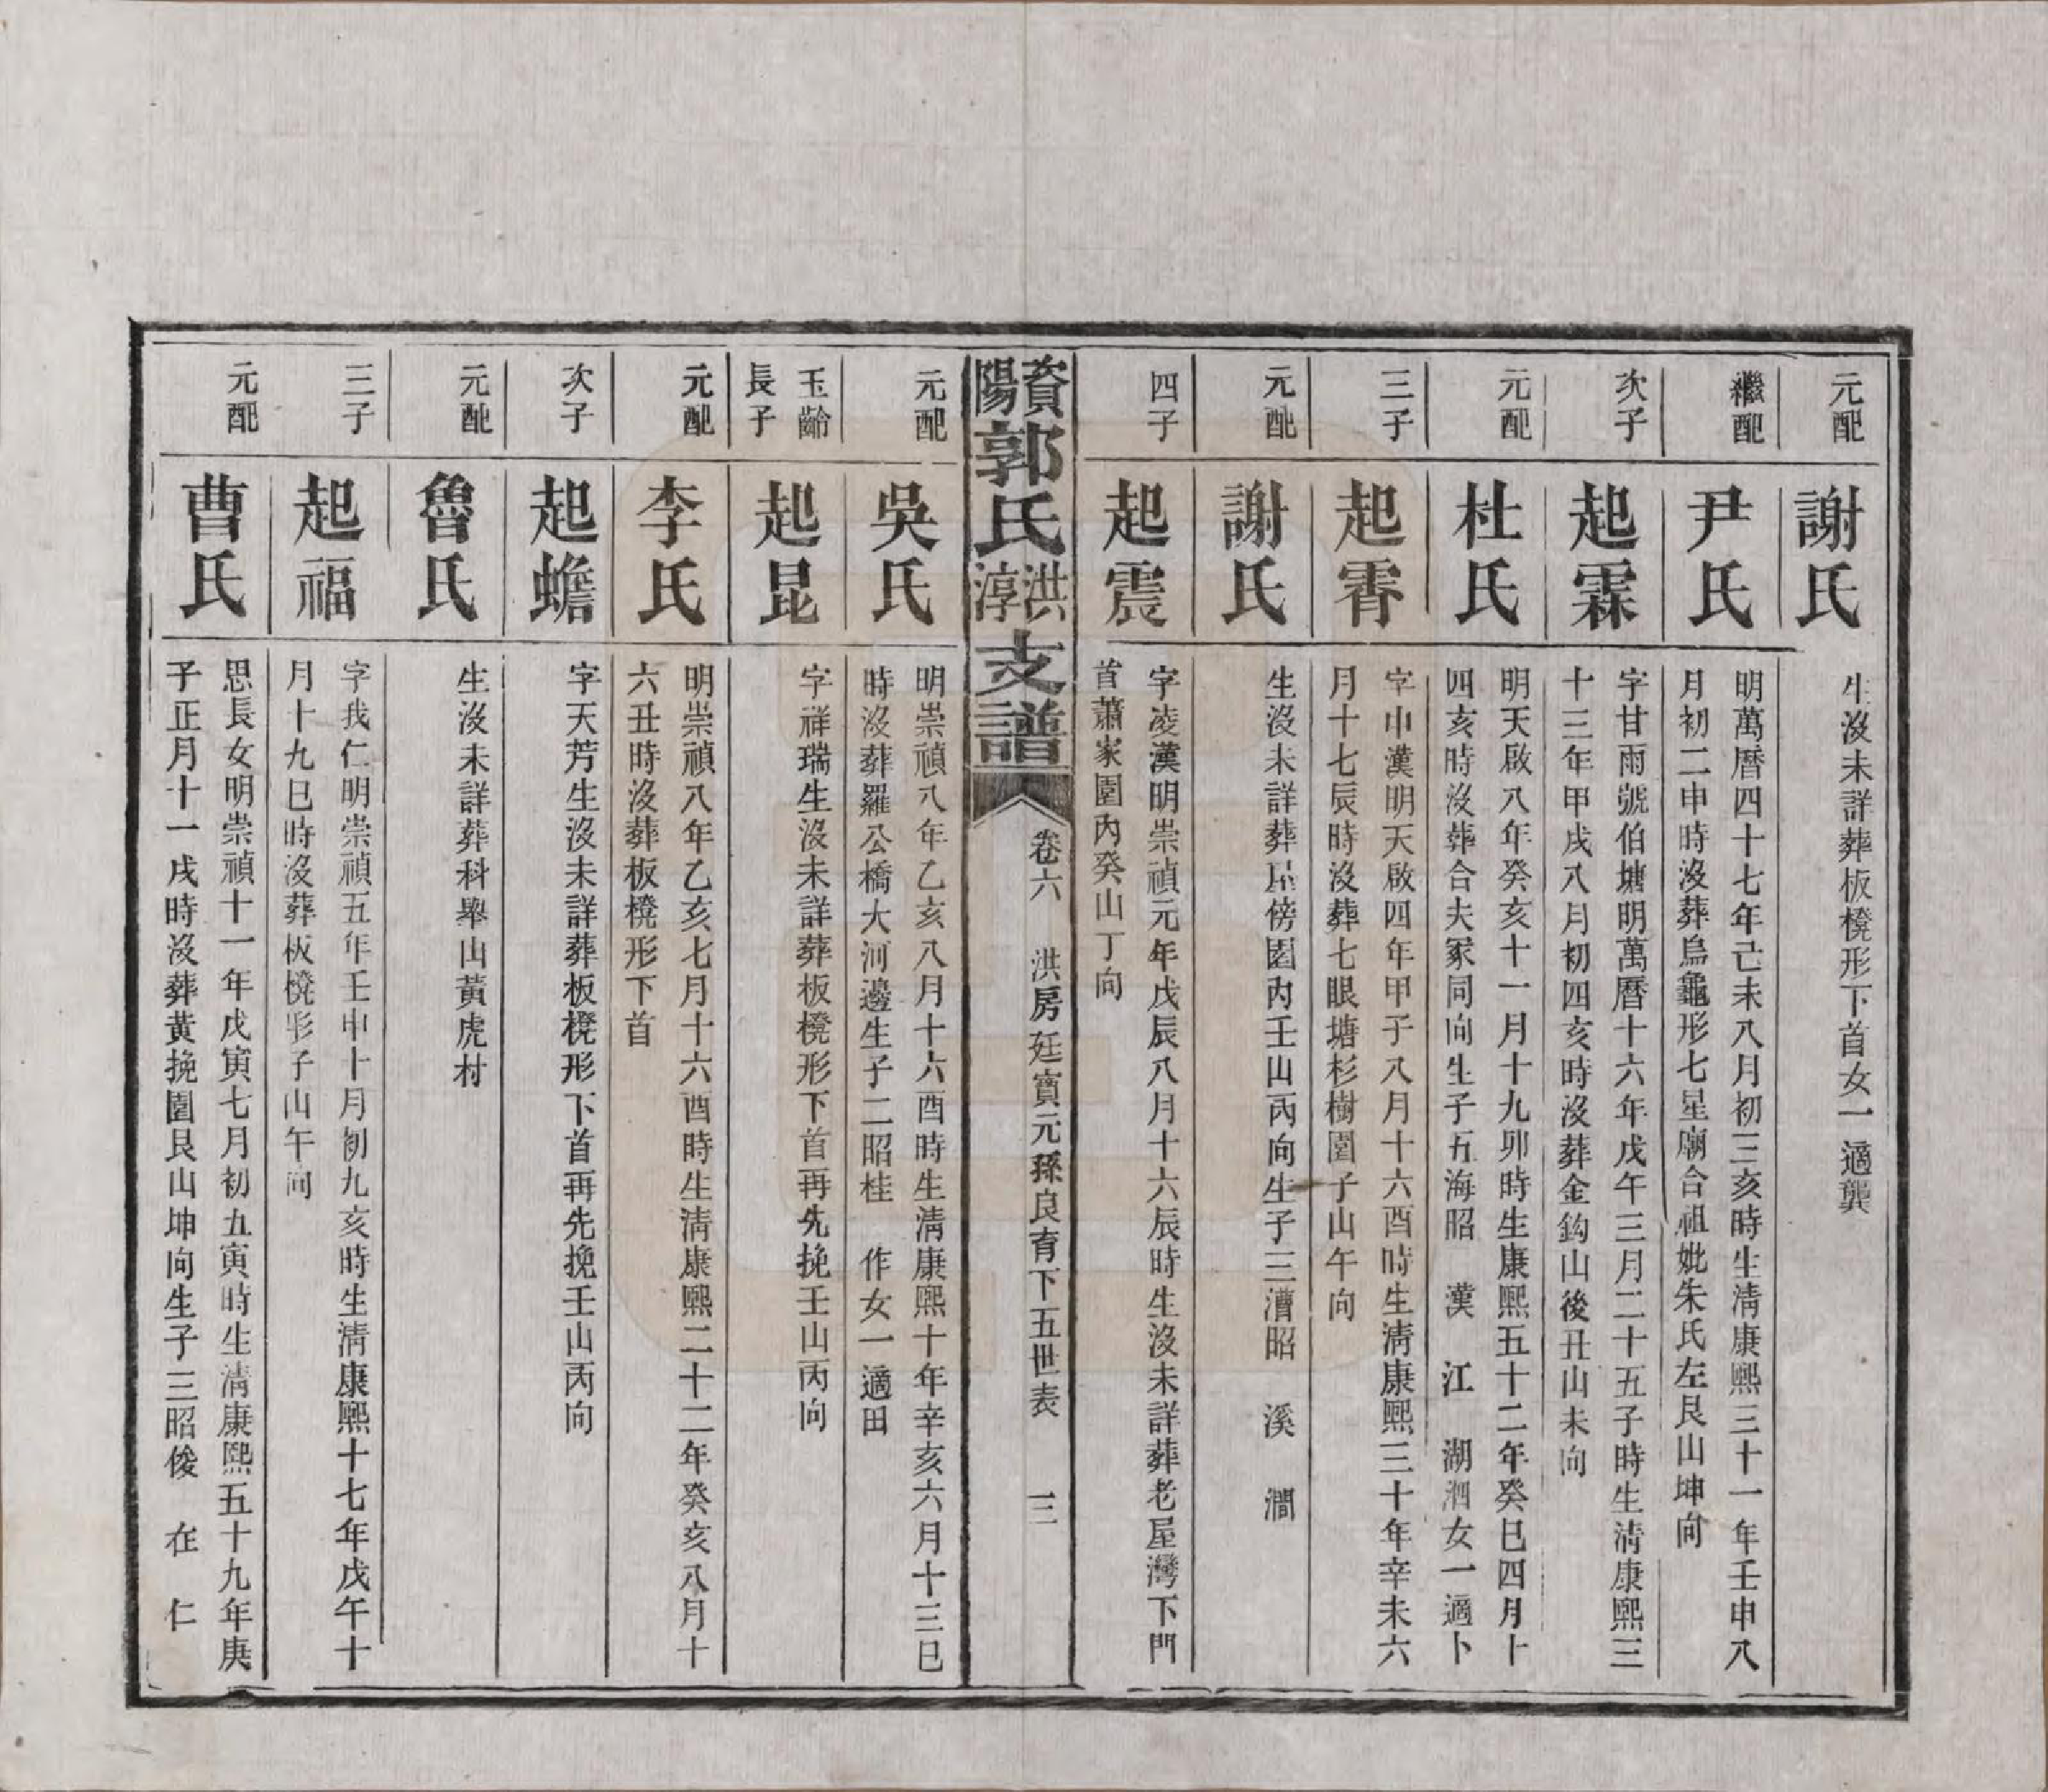 元配
謝氏
生沒未詳葬板櫈形下首女一適龔
繼配
尹氏
明萬曆四十七年己未八月初三亥時生淸康熙三十一年壬申八
月初二申時沒葬烏龜形七星廟合祖妣朱氏左艮山坤向
次子
起霖
字甘雨號伯塘明萬曆十六年戊午三月二十五子時生淸康熙三
十三年甲戌八月初四亥時沒葬金鈎山後丑山未向
元配
杜氏
明天啟八年癸亥十一月十九卯時生康熙五十二年癸巳四月十
四亥時沒葬合夫冢同向生子五海昭 漢 江 湖泗女一適卜
三子
起霄
字中漢明天啟四年甲子八月十六酉時生淸康熙三十年辛未六
月十七辰時沒葬七眼塘杉樹園子山午向
元配
謝氏
生沒未詳葬屋傍園內壬山丙向生子三漕昭 溪 澗
四子
起震
字凌漢明崇禎元年戊辰八月十六辰時生沒未詳葬老屋灣下門
首蕭家園內癸山丁向
資陽郭氏洪淳支譜
卷六 洪房廷寶元孫良育下五世表 三
元配
吳氏
明崇禎八年乙亥八月十六酉時生淸康熙十年辛亥六月十三巳
時沒葬羅公橋大河邊生子二昭桂 作女一適田
玉齡
長子
起昆
字祥瑞生沒未詳葬板櫈形下首再先挽壬山丙向
元配
李氏
明崇禎八年乙亥七月十六酉時生淸康熙二十二年癸亥八月十
六丑時沒葬板櫈形下首
次子
起蟾
字天芳生沒未詳葬板櫈形下首再先挽壬山丙向
元配
魯氏
生沒未詳葬科舉山黃虎村
三子
起福
字我仁明崇禎五年壬申十月初九亥時生淸康熙十七年戊午十
月十九巳時沒葬板櫈形子山午向
元配
曹氏
思長女明崇禎十一年戊寅七月初五寅時生淸康熙五十九年庚
子正月十一戌時沒葬黃挽園艮山坤向生子三昭俊 在 仁